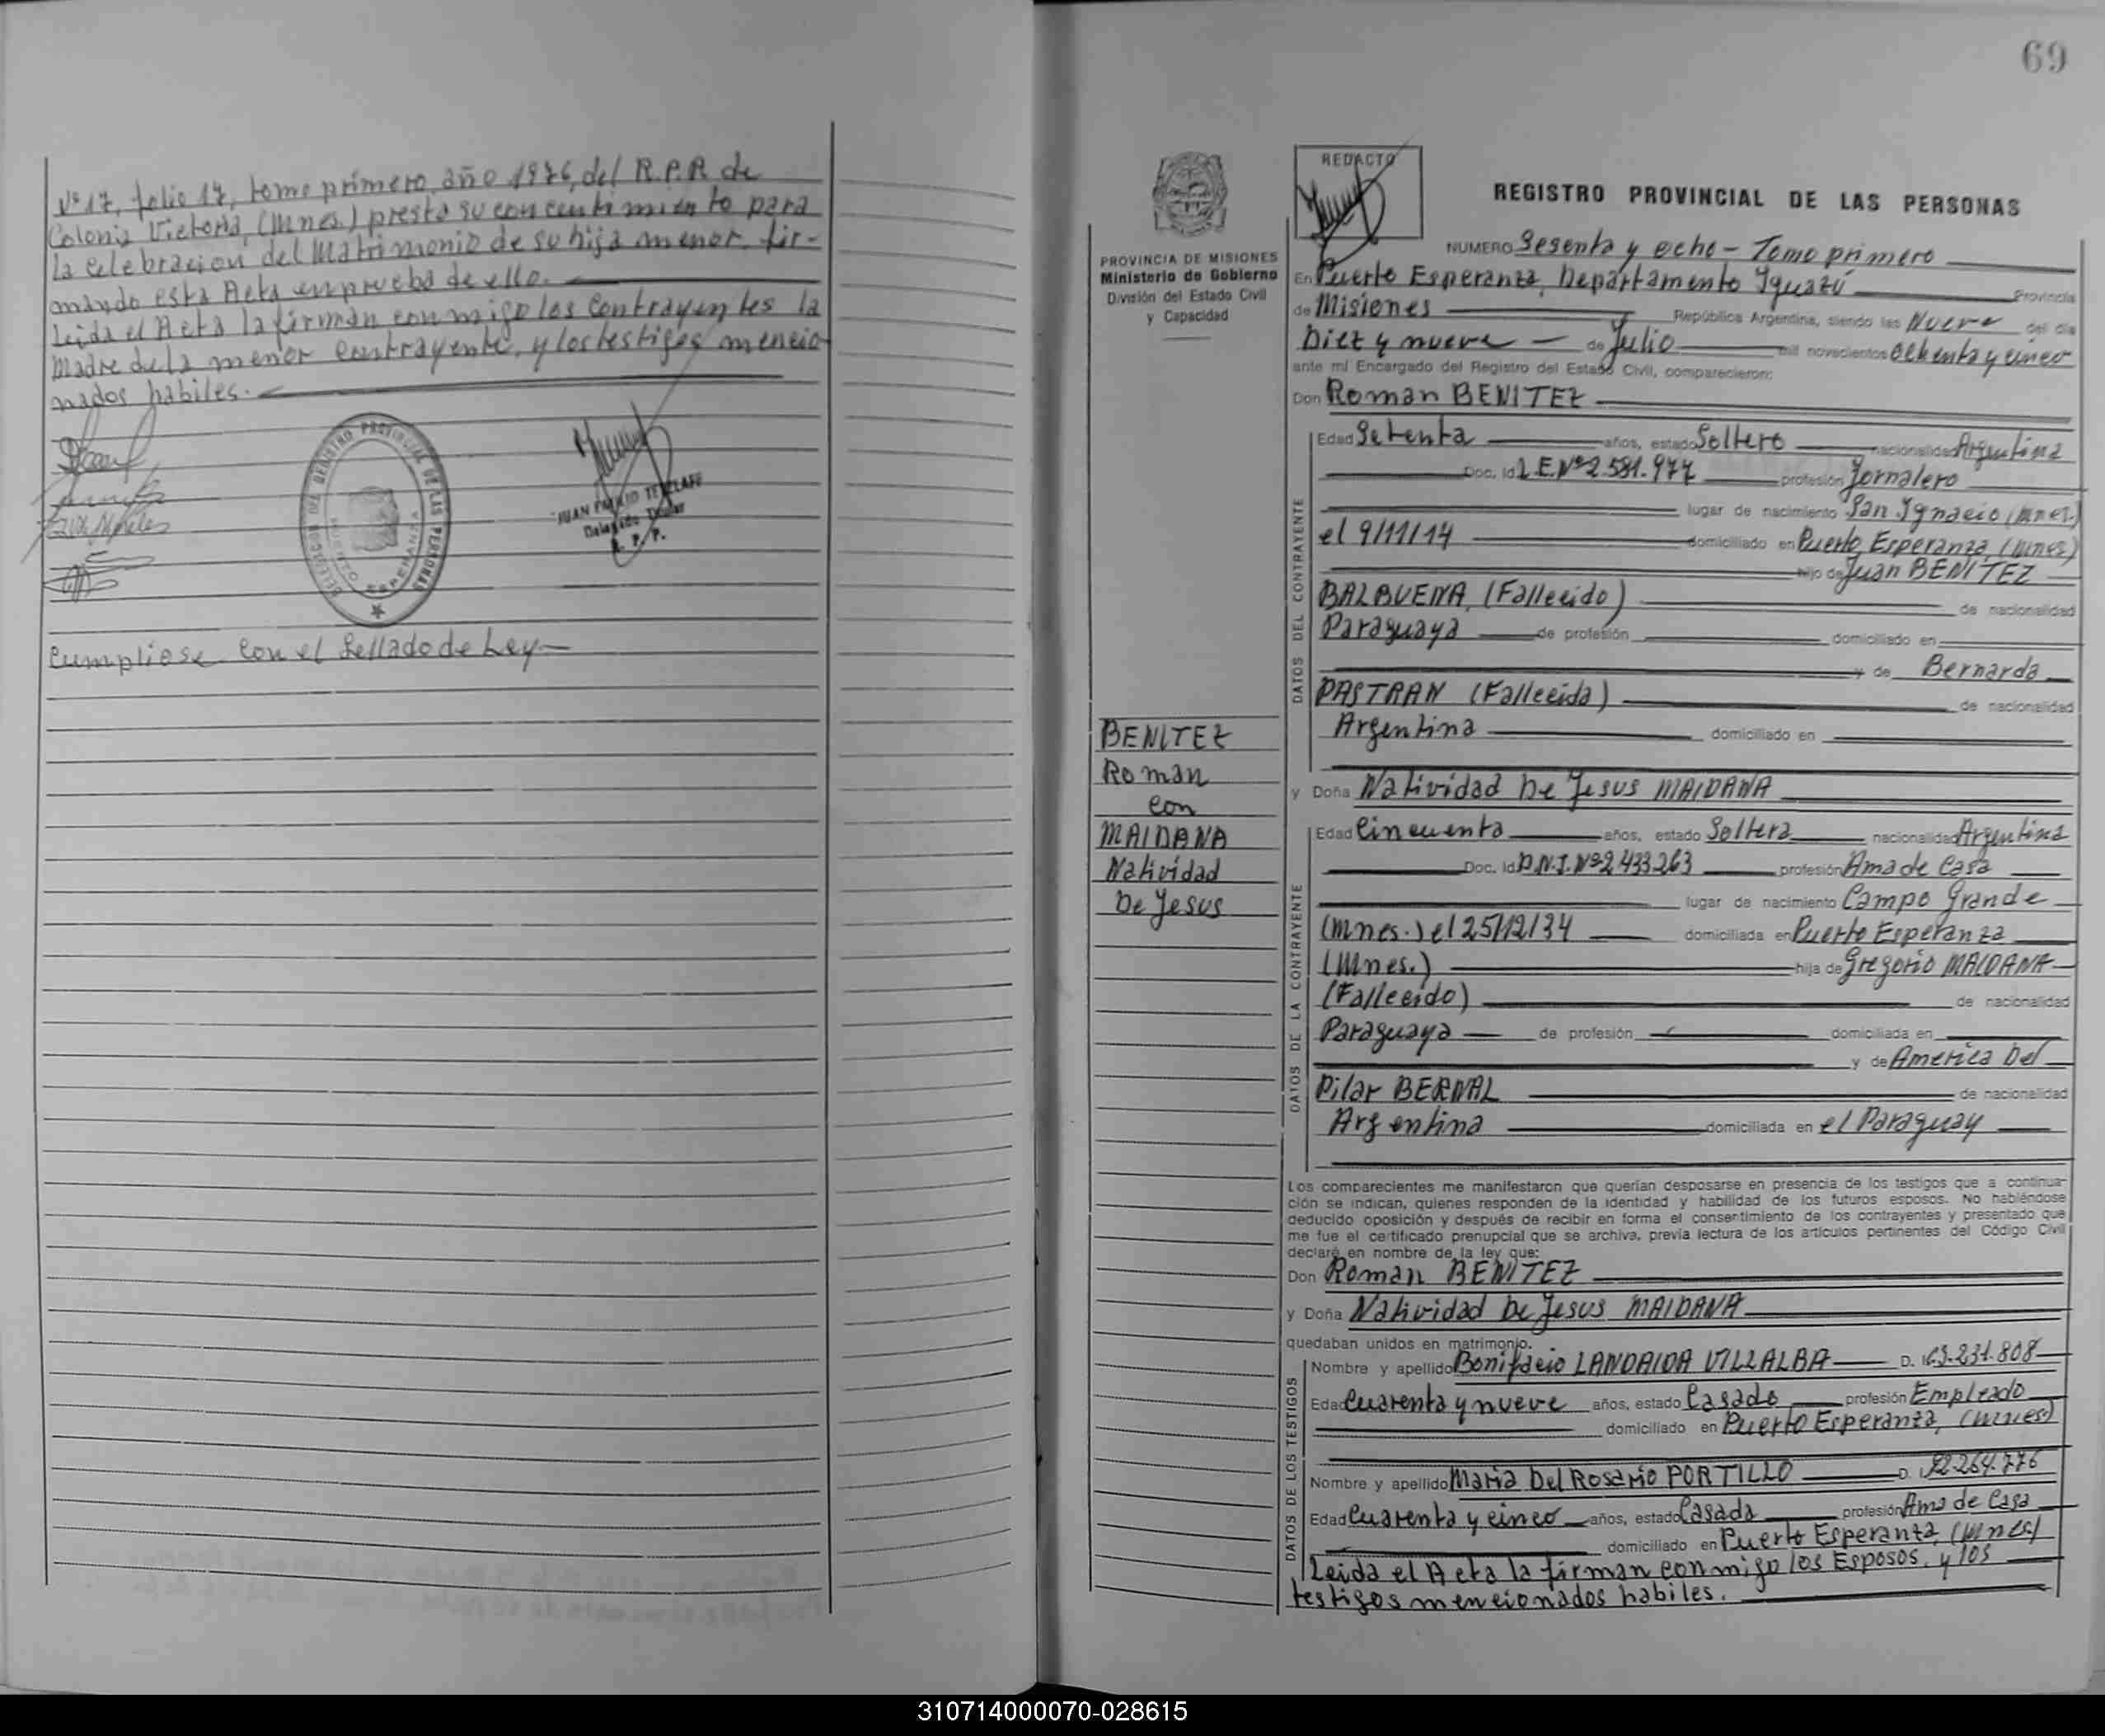 Nº 17, folio 17, tomo primero, año 1976, del R.P.P. de
Colonia Victoria, (Mnes.) presta su concentimiento para
la celebración del Matrimonio de su hija menor, fir-
mando esta Acta en prueba de ello.
Leida el Acta la firman conmigo los Contrayentes la
Madre de la menor Contrayente, y los testigos mencio
nados habiles.
JUAN EMILIO TETZLAFF
Delegado Titular
R. P. P.
Cumpliose con el Sellado de Ley
69
REDACTO
REGISTRO PROVINCIAL DE LAS PERSONAS
PROVINCIA DE MISIONES
Ministerio de Gobierno
División del Estado Civil
y Capacidad
BENITEZ
Roman
con
MAIDANA
Natividad
De Jesus
NUMERO Sesenta y ocho - Tomo primero
En Puerto Esperanza, Departamento Iguazú Provincia
de Misiones República Argentina, siendo las Nueve del día
Diez y nueve de Julio mil novecientos Ochenta y cinco
ante mí Encargado del Registro del Estado Civil, comparecieron:
Don Roman BENITEZ
DATOS DEL CONTRAYENTE
Edad Setenta años, estado Soltero nacionalidad Argentina
Doc. Id. L.E.Nº 2.581.977 profesión Jornalero
lugar de nacimiento San Ignacio (Mnes.)
el 9/11/14 domiciliado en Puerto Esperanza, (Mnes)
hijo de Juan BENITEZ
BALBUENA, (Fallecido) de nacionalidad
Paraguaya de profesión domiciliado en
y de Bernarda
PASTRAN (Fallecida) de nacionalidad
Argentina domiciliado en
y Doña Natividad De Jesus MAIDANA
DATOS DE LA CONTRAYENTE
Edad Cincuenta años, estado Soltera nacionalidad Argentina
Doc. Id. D.N.I. Nº 2.433.263 profesión Ama de Casa
lugar de nacimiento Campo Grande
(Mnes.) el 25/12/34 domiciliada en Puerto Esperanza
(Mnes.) hija de Gregorio MAIDANA
(Fallecido) de nacionalidad
Paraguaya de profesión domiciliada en
y de America Del
Pilar BERNAL de nacionalidad
Argentina domiciliada en el Paraguay
Los comparecientes me manifestaron que querían desposarse en presencia de los testigos que a continua-
ción se indican, quienes responden de la identidad y habilidad de los futuros esposos. No habiéndose
deducido oposición y después de recibir en forma el consentimiento de los contrayentes y presentado que
me fue el certificado prenupcial que se archiva, previa lectura de los artículos pertinentes del Código Civil
declaré en nombre de la ley que:
Don Roman BENITEZ
y Doña Natividad De Jesus MAIDANA
quedaban unidos en matrimonio.
DATOS DE LOS TESTIGOS
Nombre y apellido Bonifacio LANDAIDA VILLALBA D. I. 63.231.808
Edad Cuarenta y nueve años, estado Casado profesión Empleado
domiciliado en Puerto Esperanza, (Mnes)
Nombre y apellido Maria Del Rosario PORTILLO D. I. 92.264.776
Edad Cuarenta y cinco años, estado Casada profesión Ama de Casa
domiciliado en Puerto Esperanza, (Mnes)
Leida el Acta la firman conmigo los Esposos, y los
testigos mencionados habiles.
310714000070-028615